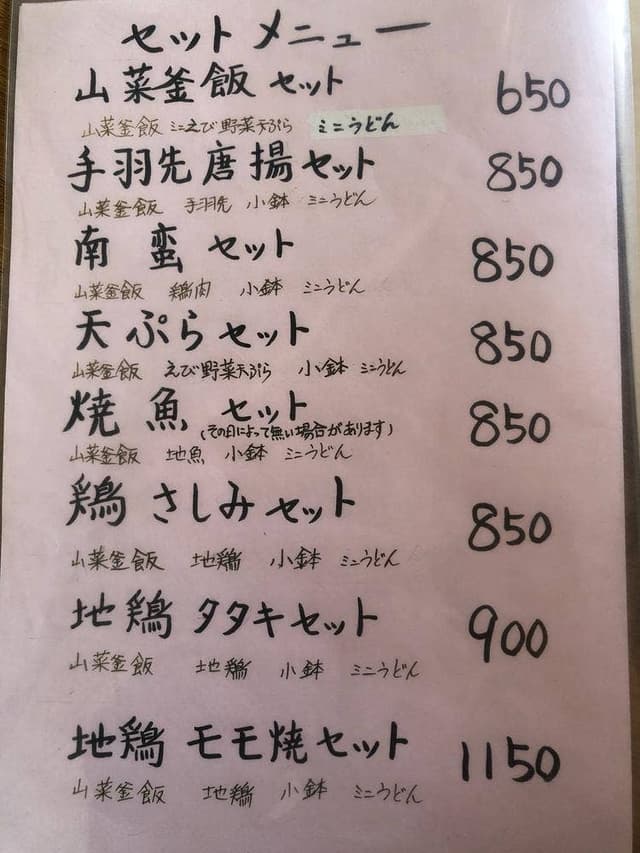 セットメニュー
山菜釜飯 セット 650
山菜釜飯 ミニえび野菜天ぷら ミニうどん
手羽先唐揚セット 850
山菜釜飯 手羽先 小鉢 ミニうどん
南蛮 セット 850
山菜釜飯 鶏肉 小鉢 ミニうどん
天ぷらセット 850
山菜釜飯 えび野菜天ぷら 小鉢 ミニうどん
焼魚 セット 850
(その日によって無い場合があります)
山菜釜飯 地魚 小鉢 ミニうどん
鶏 さしみセット 850
山菜釜飯 地鶏 小鉢 ミニうどん
地鶏 タタキセット 900
山菜釜飯 地鶏 小鉢 ミニうどん
地鶏 モモ焼セット 1150
山菜釜飯 地鶏 小鉢 ミニうどん